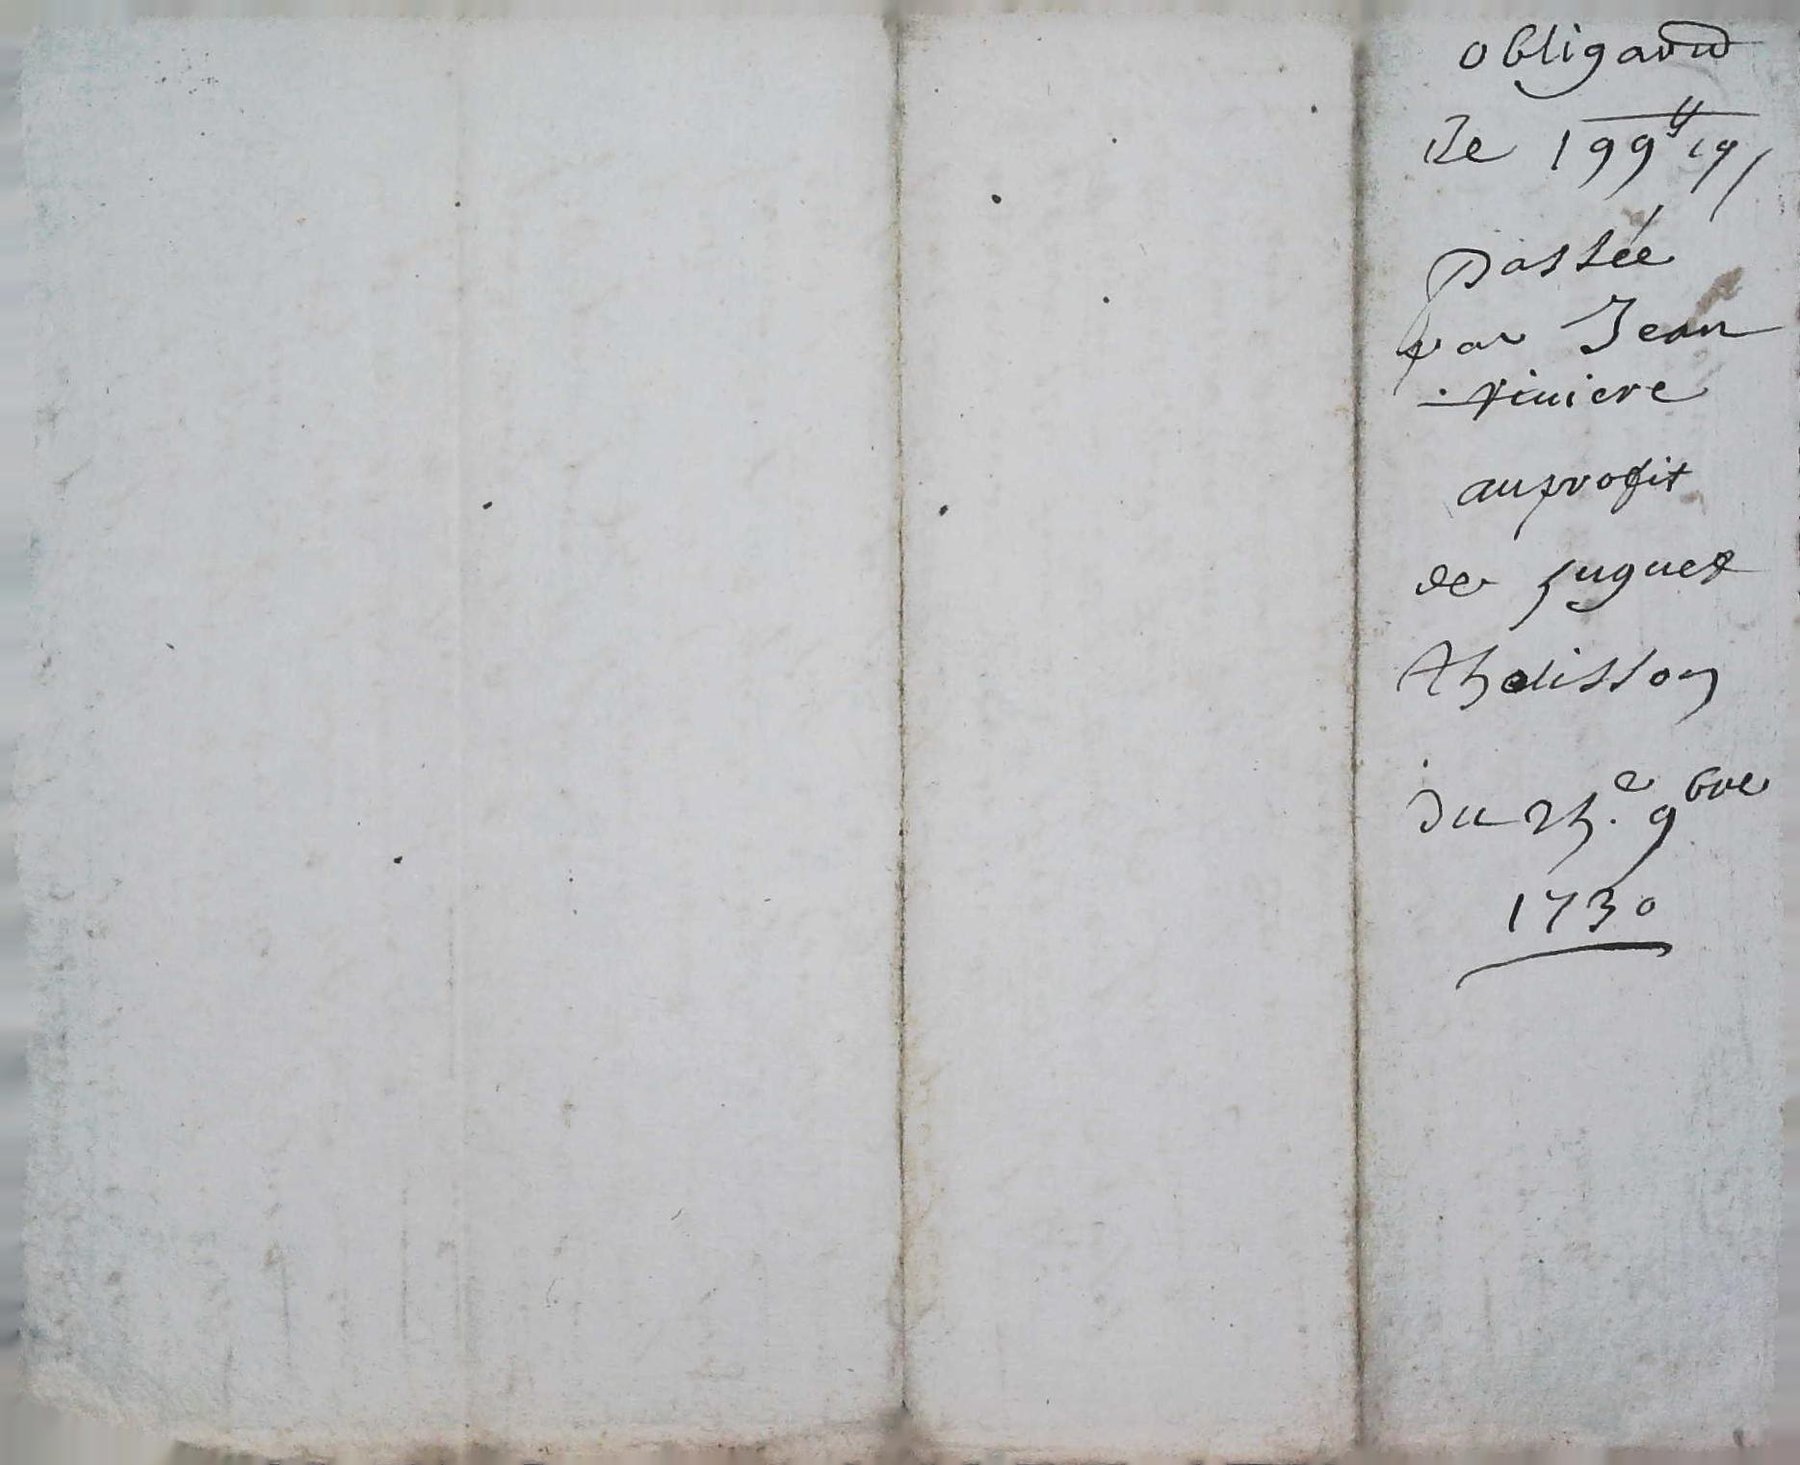 obligaōn
De 199ᵗᵗ 19ˢ
passée
par Jean
riuiere
au profit
de huguet
thelisson
Du 25.ᵉ 9bre
1730